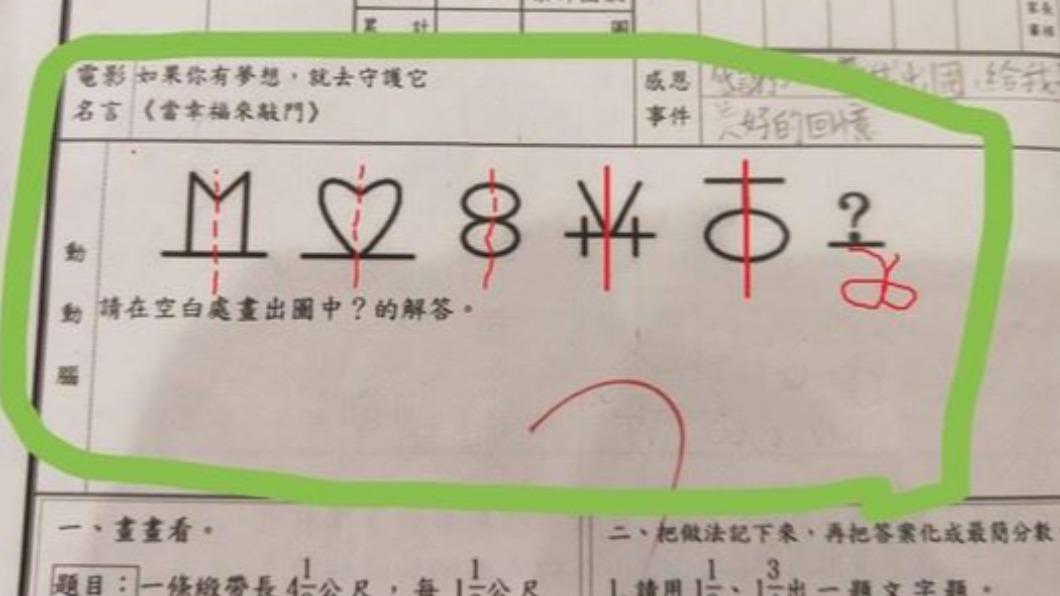 累 計
電影 如果你有夢想，就去守護它
名言 《當幸福來敲門》
感恩
事件
好的回憶
動
動
腦
?
請在空白處畫出圖中？的解答。
一、畫畫看。
題目： 一條緞帶長 4 1 公尺，每 1 1 公尺
二、把做法記下來，再把答案化成最簡分數
1. 請用 1 1 、1 3 出一題文字題。